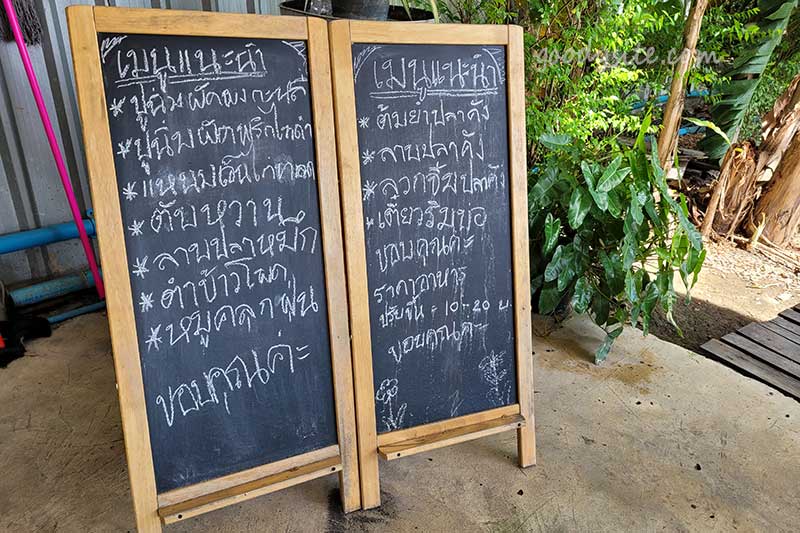 เมนูแนะนำ
* ปูนิ่มผัดผงกะหรี่
* ปูนิ่มผัดพริกไทยดำ
* แหนมเอ็นไก่ทอด
* ตับหวาน
* ลาบปลาหมึก
* ตำข้าวโพด
* หมูคลุกฝุ่น
ขอบคุณค่ะ
เมนูแนะนำ
* ต้มยำปลาคัง
* ลาบปลาคัง
* ลวกจิ้มปลาคัง
* เตี๋ยวริมบ่อ
ขอบคุณค่ะ
ราคาอาหาร
ปรับขึ้น 10-20 บ.
ขอบคุณค่ะ